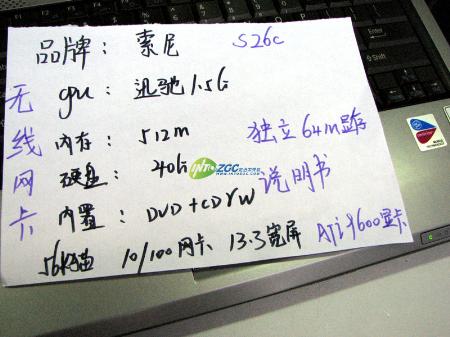 品牌：索尼 S26c
无线网卡
cpu：迅驰1.5G
内存：512m 独立64m显存
硬盘：40G 说明书
INTOZGC
内置：DVD+CDRW
56K猫 10/100网卡 13.3宽屏 ATi 9600显卡